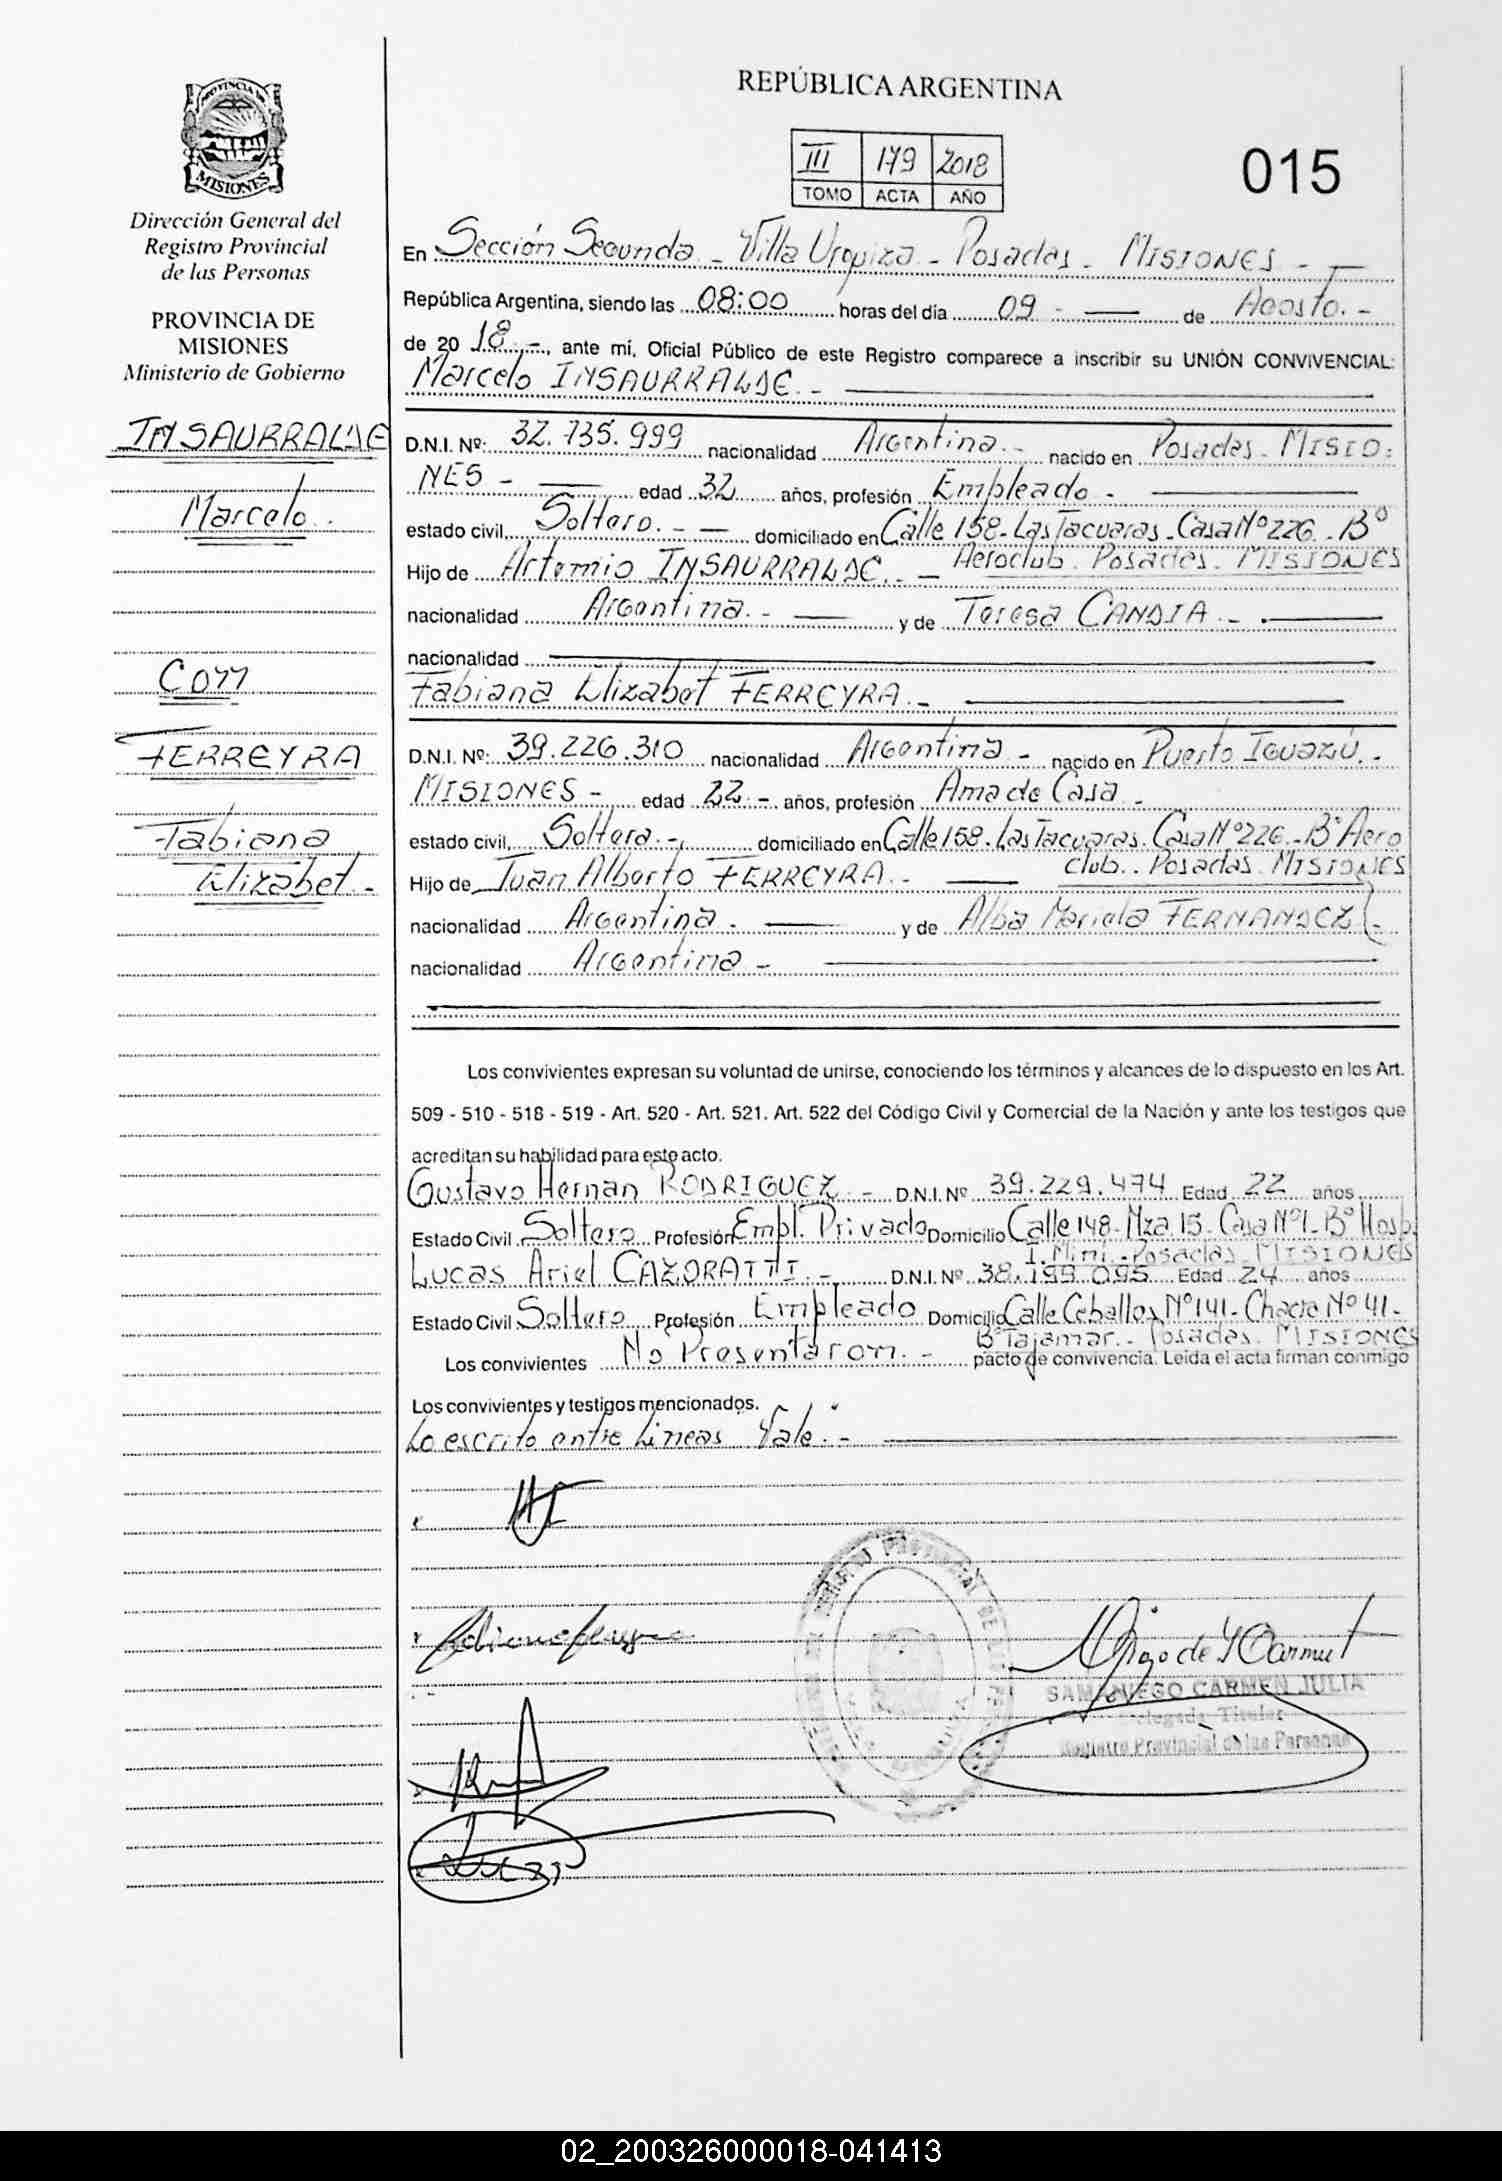 REPÚBLICA ARGENTINA
III 179 2018
TOMO ACTA AÑO
015
PROVINCIA DE
MISIONES
Dirección General del
Registro Provincial
de las Personas
PROVINCIA DE
MISIONES
Ministerio de Gobierno
INSAURRALDE
Marcelo.
Con
FERREYRA
Fabiana
Elizabet.-
En Sección Segunda - Villa Urquiza - Posadas - MISIONES -
República Argentina, siendo las 08:00 horas del día 09 - de Agosto.-
de 20 18.-, ante mí, Oficial Público de este Registro comparece a inscribir su UNIÓN CONVIVENCIAL:
Marcelo INSAURRALDE.-
D.N.I. Nº: 32.735.999 nacionalidad Argentina.- nacido en Posadas - MISIO=
NES - edad 32 años, profesión Empleado -
estado civil, Soltero.- domiciliado en Calle 158- Las Tacuaras - Casa Nº 226 - Bº
Aeroclub. Posadas. MISIONES
Hijo de Artemio INSAURRALDE.-
nacionalidad Argentina.- y de Teresa CANDIA.-
nacionalidad
Fabiana Elizabet FERREYRA.-
D.N.I. Nº: 39.226.310 nacionalidad Argentina - nacido en Puerto Iguazú.-
MISIONES - edad 22 - años, profesión Ama de Casa -
estado civil, Soltera.- domiciliado en Calle 158- Las Tacuaras. Casa Nº 226 - Bº Aero
club.. Posadas. MISIONES
Hijo de Juan Alberto FERREYRA.-
nacionalidad Argentina. y de Alba Mariela FERNANDEZ.-
nacionalidad Argentina -
Los convivientes expresan su voluntad de unirse, conociendo los términos y alcances de lo dispuesto en los Art.
509 - 510 - 518 - 519 - Art. 520 - Art. 521. Art. 522 del Código Civil y Comercial de la Nación y ante los testigos que
acreditan su habilidad para este acto.
Gustavo Hernan RODRIGUEZ - D.N.I. Nº 39.229.474 Edad 22 años
Estado Civil Soltero Profesión Empl. Privado Domicilio Calle 148- Mza 15- Casa Nº1- Bº Hosp.
I. Mini - Posadas - MISIONES
Lucas Ariel CAZORATTI.- D.N.I. Nº 38.199.095 Edad 24 años
Estado Civil Soltero Profesión Empleado Domicilio Calle Ceballos Nº 141- Chacra Nº 41-
Bº Tajamar.- Posadas. MISIONES
Los convivientes No Presentaron.- pacto de convivencia. Leída el acta firman conmigo
Los convivientes y testigos mencionados.
Lo escrito entre Líneas Vale.-
SAMANIEGO CARMEN JULIA
Delegada Titular
Registro Provincial de las Personas
02_200326000018-041413